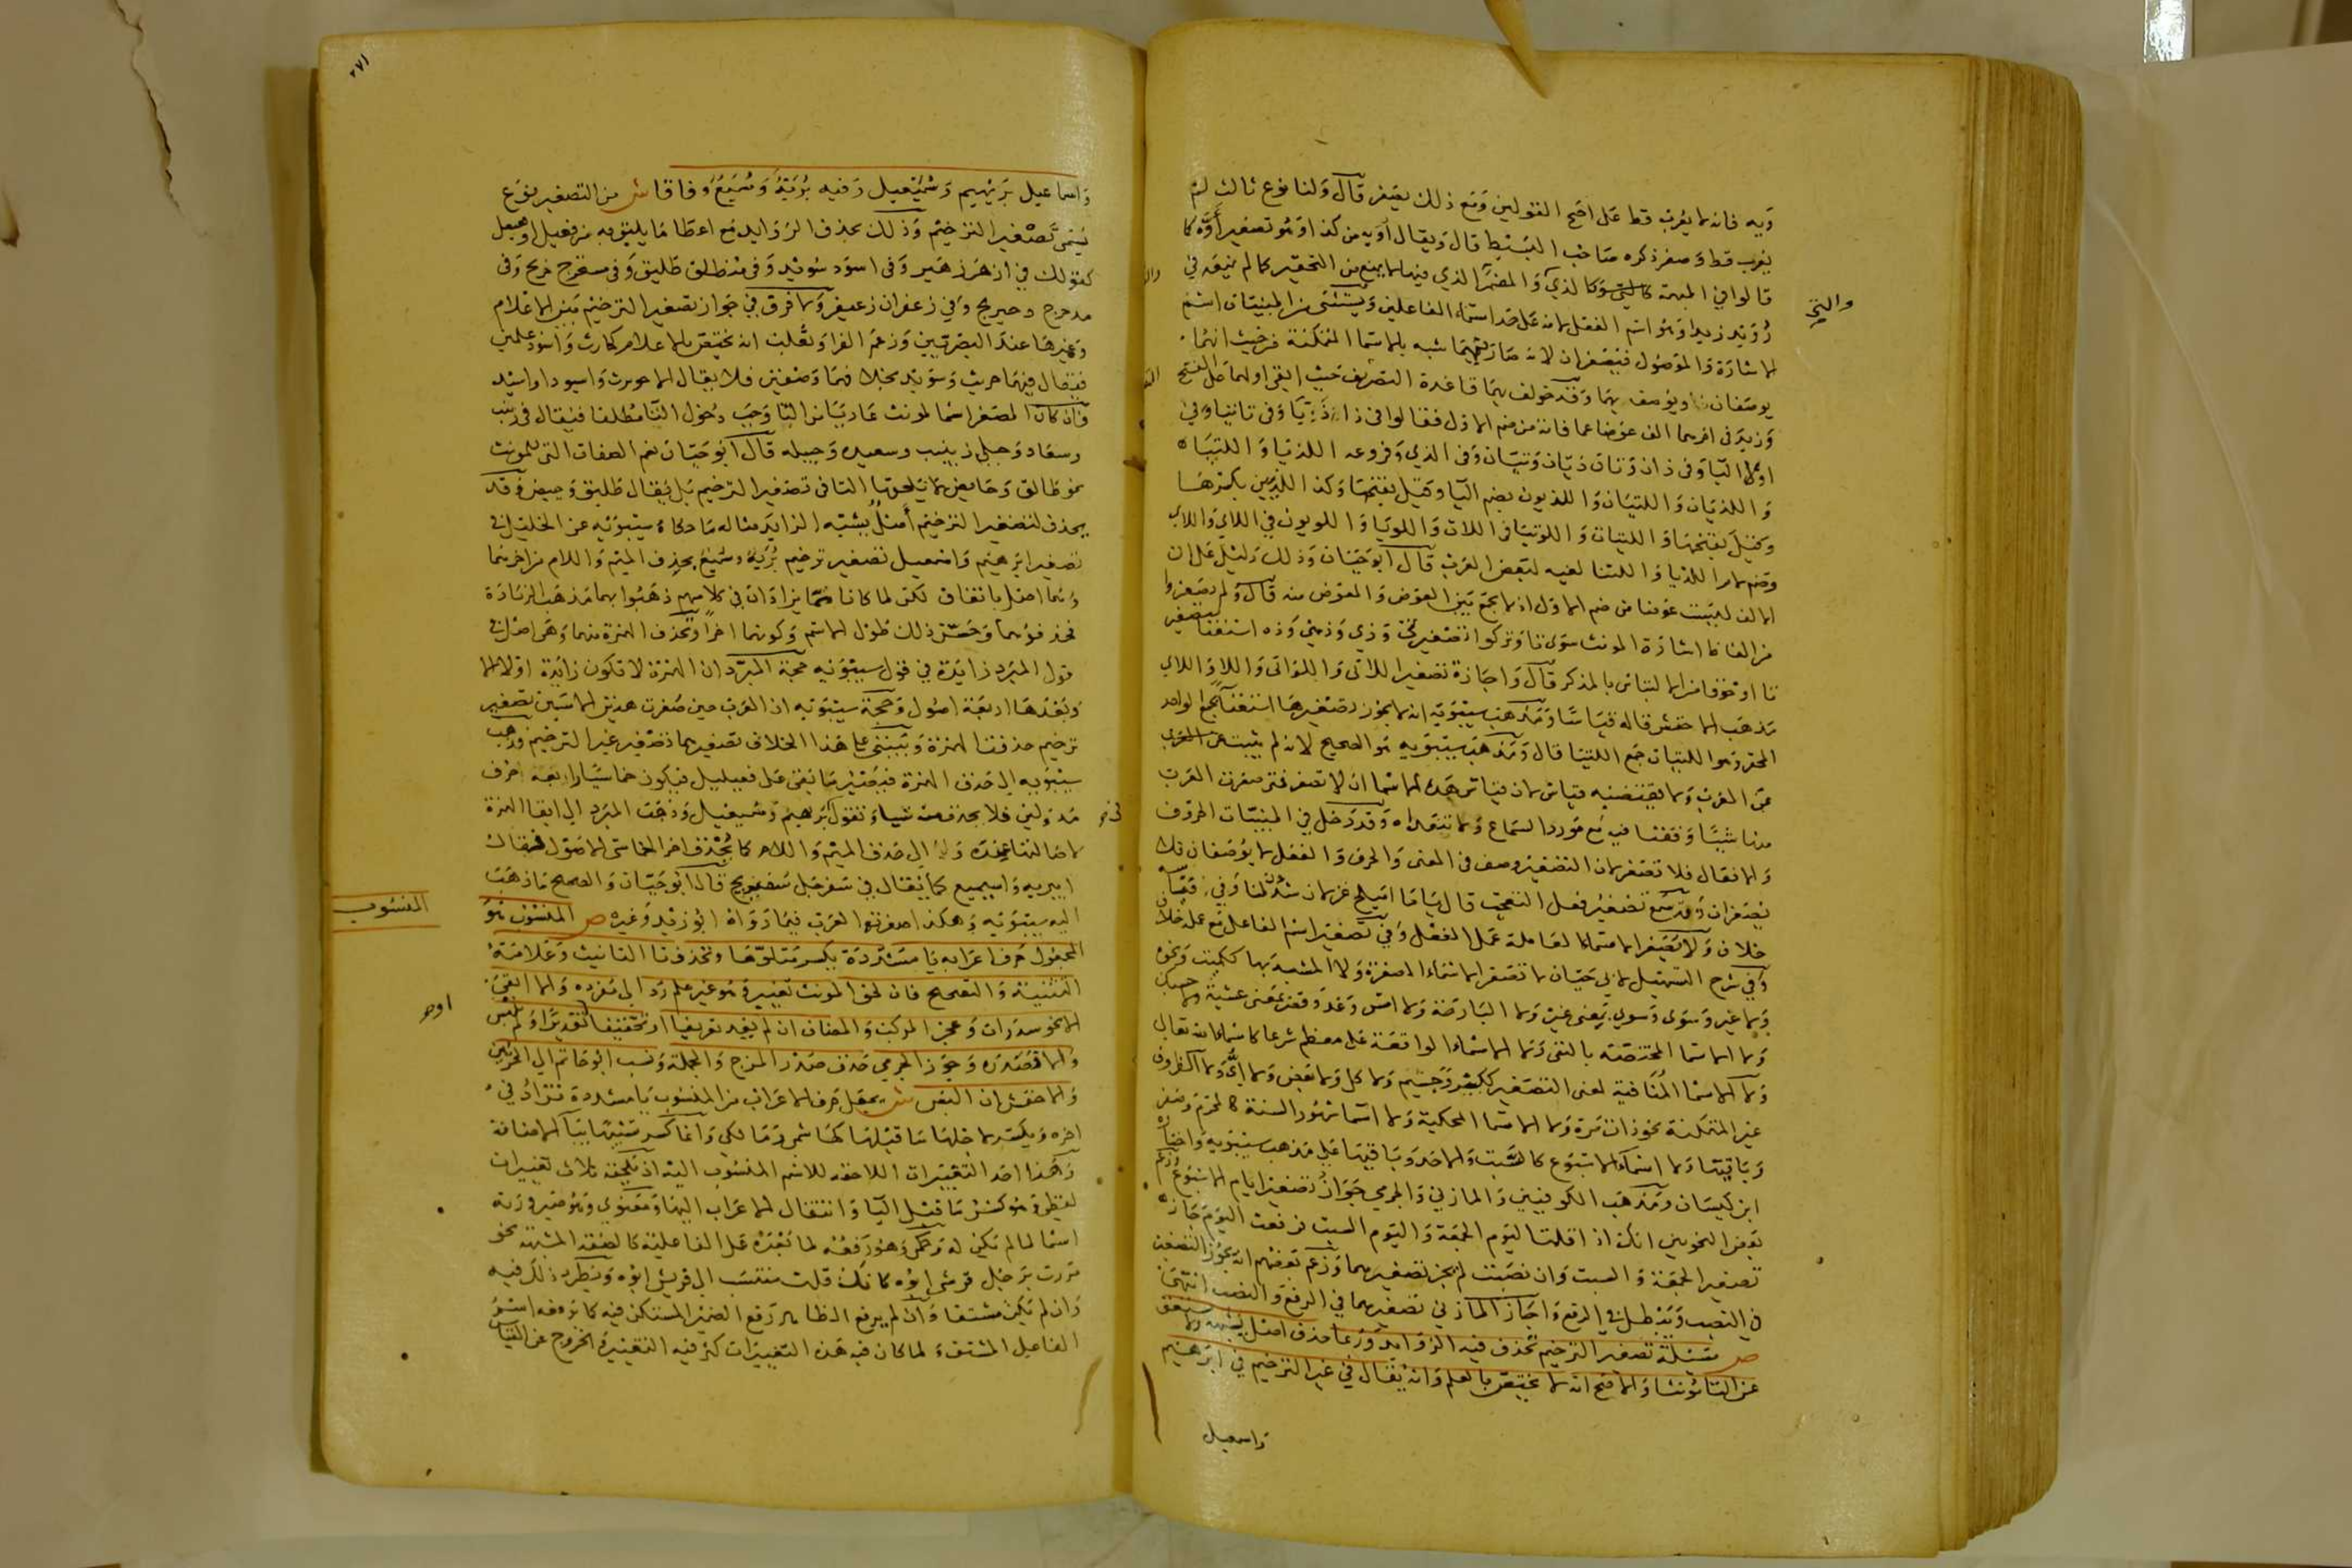 ويه فانه لا يعرب قط على اصح القولين ومع ذلك يصغر قال ولنا نوع ثالث لم
يعرب قط وصغر ذكره صاحب البسيط قال ويقال أويه من كذا وهو تصغير أوّه كما
قالوا في المبهمة كالذي والمضمر الذي فيها لا يمنع من التحقير كما لم يمنعه في
رويد زيدا وهو اسم الفعل لانه على حد اسماء الفاعلين ويستثنى من المبنيات اسم
الاشارة والموصول فيصغران لانه صار فيهما شبه بالاسما المتمكنة من حيث انهما
يوصفان ويوصف بهما وقد خولف بهما قاعدة التصريف حيث ابقى اولهما على الفتح
وزيد في اخرهما الف عوضا عما فاته من ضم الاول فقالوا في ذا ذيّا وفى تا تيا وفي
اولى اليا وفى ذان وتان ذيان وتيان وفى الذي وفروعه اللذيا واللتيا
واللذيان واللتيان واللذيون بضم اليا وقيل بفتحها وكذا اللذيين بكسرها
وقيل بفتحها واللتيات واللوتيا في اللات واللويا واللويون في اللاي واللاي
وضم لام اللذيا واللتيا لغيه لبعض العرب قال ابو حيان وذلك دليل على ان
الالف ليست عوضا من ضم الاول اذ لا يجمع بين العوض والمعوض منه قال ولم يصغروا
من الفاظ اشارة المونث سوى تا وتركوا تصغير تي وذي وذهي وذه استغنا بتصغير
تا او خوفا من الالتباس بالمذكر قال واجازة تصغير اللاتى واللواتى واللاء واللاي
مذهب الاخفش قاله قياسا ومذهب سيبويه انه لا يجوز تصغيرها استغنا بجمع الواحد
المحقر وهو اللتيات جمع اللتيا قال ومذهب سيبويه هو الصحيح لانه لم يثبت عن العرب
ولا يقتضيه قياس لان قياس هذه الاسما ان لا تصغر فمتى صغرت العرب
منها شييا وقفنا فيه مع مورد السماع ولا نتعداه وقد دخل في المبنيات الحروف
والافعال فلا تصغر لان التصغير وصف فى المعنى والحرف والفعل لا يوصفان فلا
يصغران وقد سمع تصغير فعل التعجب قال يا ما اميلح غزلانا شدن لنا وفي قياسه
خلاف ولا تصغير الاسماء العاملة عمل الفعل وفي تصغير اسم الفاعل مع عمله خلاف
وفي شرح التسهيل لابي حيان لا تصغر الاسماء المصغرة ولا المشبهة بها ككميت ونحوه
ولا غير وسوى وسوى بمعنى غير ولا البارحة ولا امس وغد وقصر بمعنى عشية ولا حسبك
ولا الاسما المختصة بالنفى ولا الاسماء الواقعة على معظم شرعا كاسمائه تعالى
ولا الاسما المنافية لمعنى التصغير ككبير وجسيم ولا كل ولا بعض ولا اي ولا الظروف
غير المتمكنة نحو ذات مرة ولا الاسما المحكية ولا اسما شهور السنة كالمحرم وصفر
وباقيها ولا اسماء الاسبوع كالسبت والاحد وباقيها على مذهب سيبويه واختاره
ابن كيسان ومذهب الكوفيين والمازني والجرمي جواز تصغير ايام الاسبوع وزعم
بعض النحويين انك اذا قلت اليوم الجمعة واليوم السبت فرفعت اليوم جاز
تصغير الجمعة والسبت وان نصبت لم يجز تصغيرهما وزعم بعضهم انه يجوز التصغير
في النصب ويبطل في الرفع واجاز المازني تصغيرهما في الرفع والنصب انتهى
ص مسئلة تصغير الترخيم تحذف فيه الزوايد وربما حذف اصل يشبهه ولا يستغنى
عن التا مؤنثا والاصح انه لا يختص بالعلم وانه يقال في غير الترخيم في ابرهيم
واسمعيل
٢٧١
واسماعيل بريهيم وسميعيل وفيه بريه وسميع وفاقا ش من التصغير نوع
يسمى تصغير الترخيم وذلك بحذف الزوايد مع اعطا ما يليق به من فعيل او فعيعل
كقولك في ازهر زهير وفى اسود سويد وفى منطلق طليق وفى مستخرج خريج وفى
مدحرج دحيريج وفي زعفران زعيفر ولا فرق في جواز تصغير الترخيم بين الاعلام
وغيرها عند البصريين وزعم الفرا وثعلب انه يختص بالاعلام كحارث واسود علمين
فيقال فيهما حريث وسويد بخلافهما وصفين فلا يقال الا حويرث واسيود او اسيد
وان كان المصغر اسما لمونث عاريا من التا وجب دخول التا مطلقا فيقال فى زينب
وسعاد وحبلى زنيبه وسعيده وحبيله قال ابو حيان نعم الصفات التى للمونث
نحو طالق وحايض لا تلحقها التا فى تصغير الترخيم بل يقال طليق وحييض وقد
يحذف لتصغير الترخيم أصل يشبه الزايد مثاله ما حكاه سيبويه عن الخليل في
تصغير ابرهيم واسمعيل تصغير ترخيم بريه وسميع بحذف الميم واللام من اخرهما
وهما اصل باتفاق لكن لما كانا مما يزادان في كلامهم ذهبوا بهما مذهب الزيادة
فحذفوهما وحسن ذلك طول الاسم وكونهما اخرا وتحذف الهمزة منهما وهي اصل في
قول المبرد زايدة في قول سيبويه حجة المبرد ان الهمزة لا تكون زايدة اولا الا
وبعدها اربعة اصول وحجة سيبويه ان العرب حين صغرت هذين الاسمين تصغير
ترخيم حذفت الهمزة ويبتني على هذا الخلاف تصغيرهما تصغير غير الترخيم فذهب
سيبويه الى حذف الهمزة فيصير ما يبقى على فعيليل فيكون خماسيا رابعه حرف
مد ولين فلا يحذف منه شيا وتقول بريهيم وسميعيل وذهب المبرد الى ابقا الهمزة
لاصالتها عنده والى حذف الميم واللام كما يحذف اخر الخماسي الاصول فيقال
ابيريه واسيميع كما يقال في سفرجل سفيريج قال ابو حيان والصحيح ما ذهب
اليه سيبويه وهكذا صغرته العرب فيما رواه ابو زيد وغيره ص المنسوب هو
المنسوب
المجعول حرف اعرابه يا مشددة بكسر متلوها وتحذف تا التانيث وعلامة
التثنية والتصحيح فان لحق المونث تغيير وهو غير علم رد الى مفرده والا ابقى
الا نحو سدرات وعجز المركب والمضاف ان لم يفد تعريفا او تحقيقا او تقديرا ولم يلبس
والا فصدره وجوز الجرمي حذف صدر المزج والجملة ونسب ابو حاتم الى الجزئين
والاخفش ان البس ش يجعل حرف الاعراب من المنسوب يا مشددة تزاد في
اخره ويكسر لاجلها ما قبلها كهاشمي ومالكي وانما كسر تشبيها بيا الاضافة
وهذا احد التغييرات اللاحقة للاسم المنسوب اليه اذ يلحقه ثلاث تغييرات
لفظي وهو كسر ما قبل اليا وانتقال الاعراب اليها ومعنوي وهو صيرورته
اسما لما لم يكن له وحكمي وهو رفعه لما بعده على الفاعلية كالصفة المشبهة نحو
مررت برجل قرشي ابوه كانك قلت منتسب الى قريش ابوه ويطرد ذلك فيه
وان لم يكن مشتقا وان لم يرفع الظاهر رفع الضمير المستكن فيه كما يرفعه اسم
الفاعل المشتق ولما كان فيه هذه التغييرات كثر فيه التغيير والخروج عن القياس